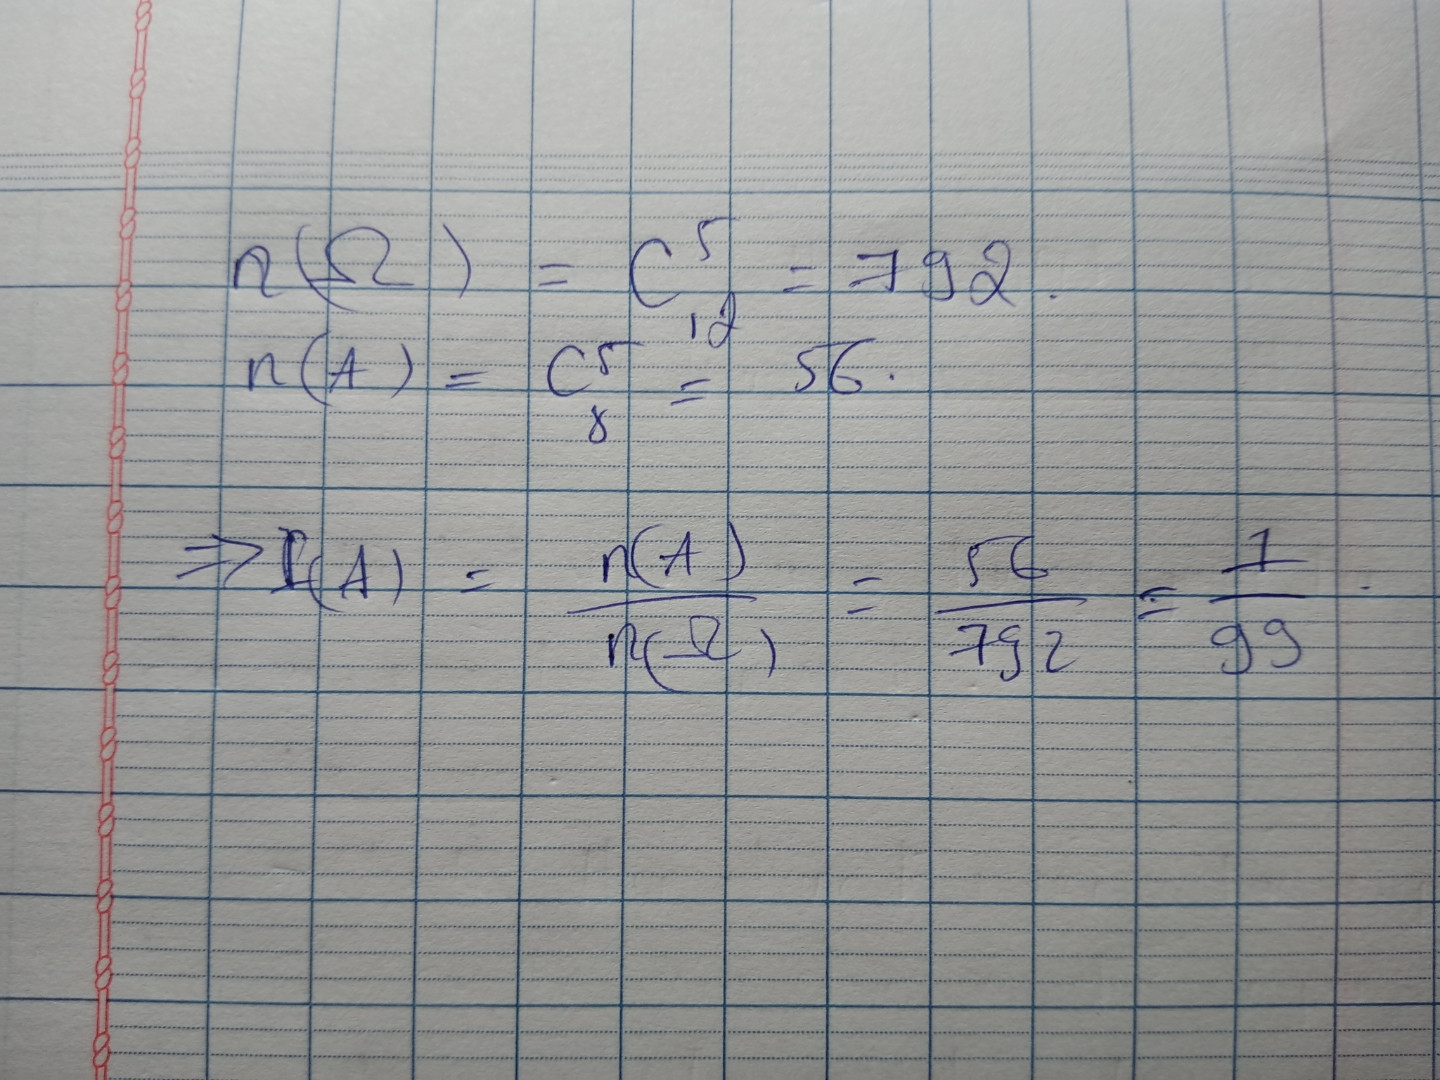 n(Ω) = C⁵₁₂ = 792.
n(A) = C⁵₈ = 56.
⇒ P(A) = n(A)/n(Ω) = 56/792 = 7/99.